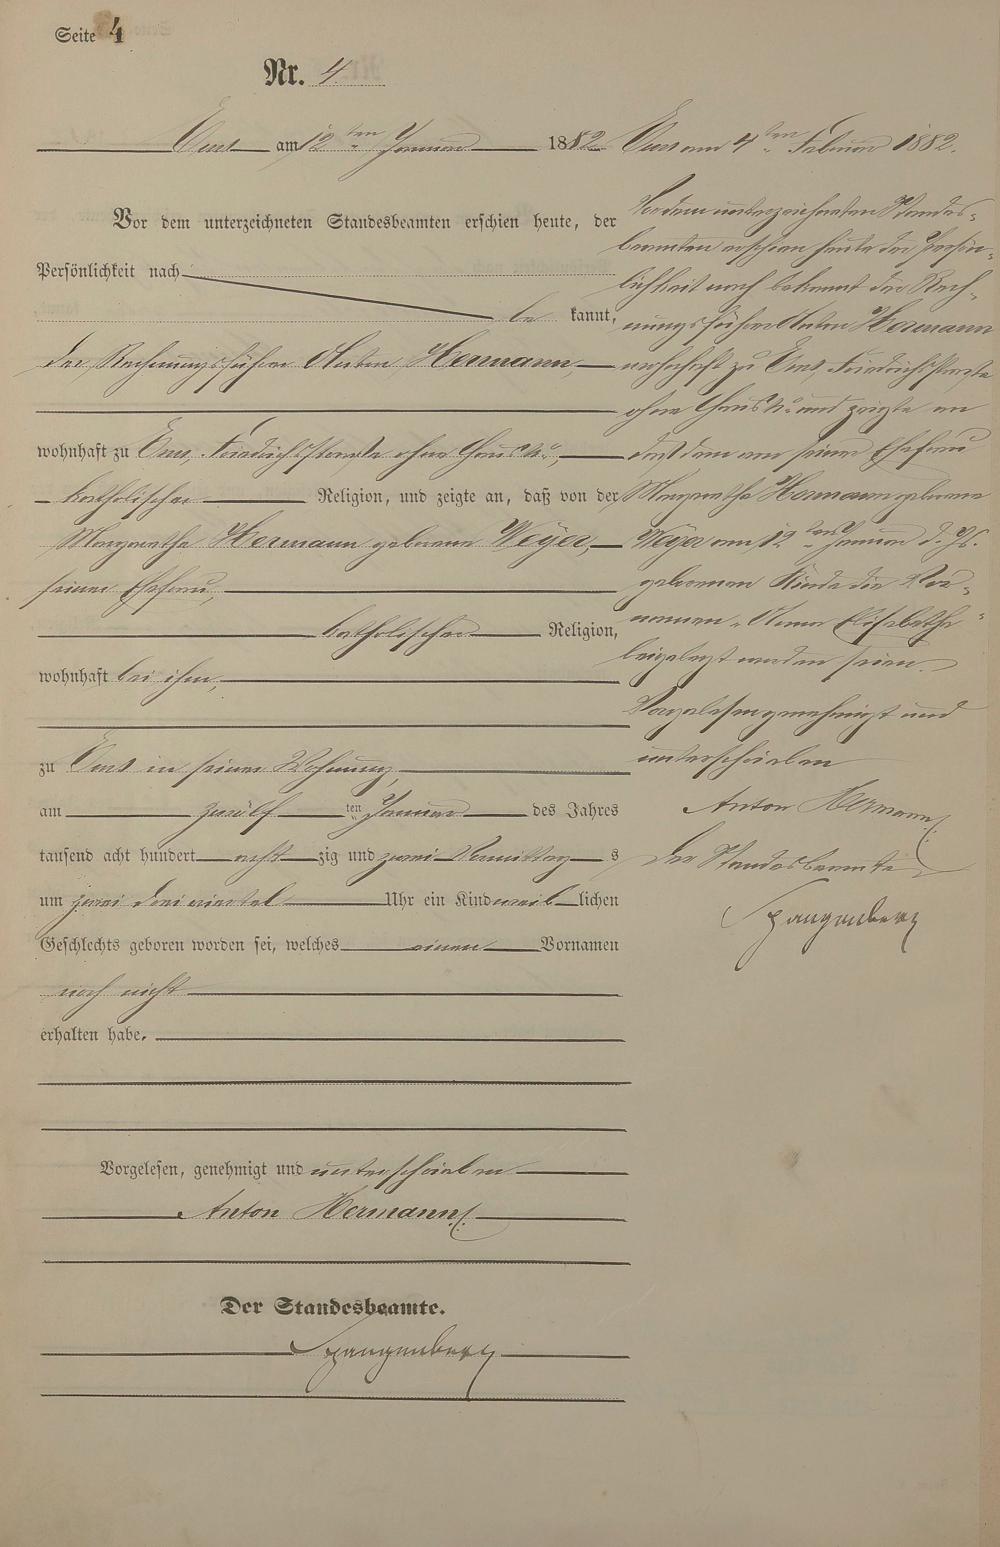 Seite 4
Nr. 4.
Ems am 12ten Januar 1882
Vor dem unterzeichneten Standesbeamten erschien heute, der
Persönlichkeit nach
be kannt,
der Rechnungsführer Anton Hermann,
wohnhaft zu Ems, Friedrichstraße ohne Haus No,
katholischer Religion, und zeigte an, daß von der
Margaretha Hermann geborene Weyer,
seiner Ehefrau,
katholischer Religion,
wohnhaft bei ihm,
zu Ems in seiner Wohnung,
am zwölf ten Januar des Jahres
tausend acht hundert acht zig und zwei Vormittags
um zwei dreiviertel Uhr ein Kind weib lichen
Geschlechts geboren worden sei, welches einen Vornamen
noch nicht
erhalten habe.
Vorgelesen, genehmigt und unterschrieben
Anton Hermann
Der Standesbeamte.
Spangenberg
Ems am 4ten Februar 1882.
Vor dem unterzeichneten Standes-
beamten erschien heute der Persön-
lichkeit nach bekannt der Rech-
nungsführer Anton Hermann
wohnhaft zu Ems, Friedrichstraße
ohne Haus No und zeigte an
daß dem von seiner Ehefrau
Margaretha Hermann geborene
Weyer am 12ten Januar d. Js.
geborenen Kinde die Vor-
namen "Anna Elisabetha"
beigelegt worden seien.
Vorgelesen genehmigt und
unterschrieben
Anton Hermann
Der Standesbeamte
Spangenberg